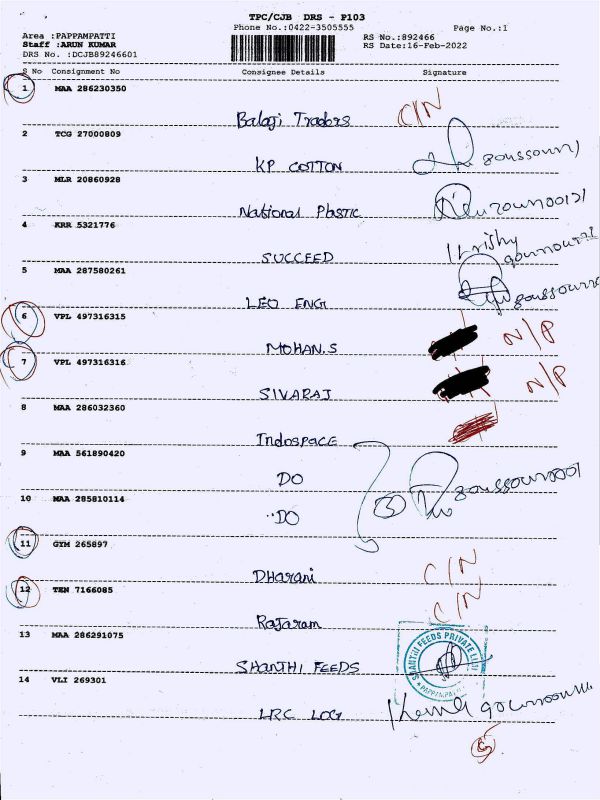 TPC/CJB DRS - P103
Phone No.:0422-3505555 Page No.:1
Area :PAPPAMPATTI RS No.:892466
Staff :ARUN KUMAR RS Date:16-Feb-2022
DRS No. :DCJB89246601
S No Consignment No Consignee Details Signature
1 MAA 286230350
Balaji Traders C/N
2 TCG 27000809
KP COTTON
3 MLR 20860928
National Plastic
4 KRR 5321776
SUCCEED
5 MAA 287580261
LEO ENG
6 VPL 497316315
MOHAN.S N/P
7 VPL 497316316
SIVARAJ N/P
8 MAA 286032360
Indospace
9 MAA 561890420
DO
10 MAA 285810114
"DO
11 GYM 265897
Dharani C/N
12 TEN 7166085
Rajaram C/N
13 MAA 286291075
SHANTHI FEEDS SHANTHI FEEDS PRIVATE LTD
14 VLI 269301
LRC LOG